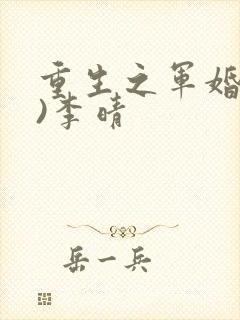 重生之军婚
)李晴
岳一兵